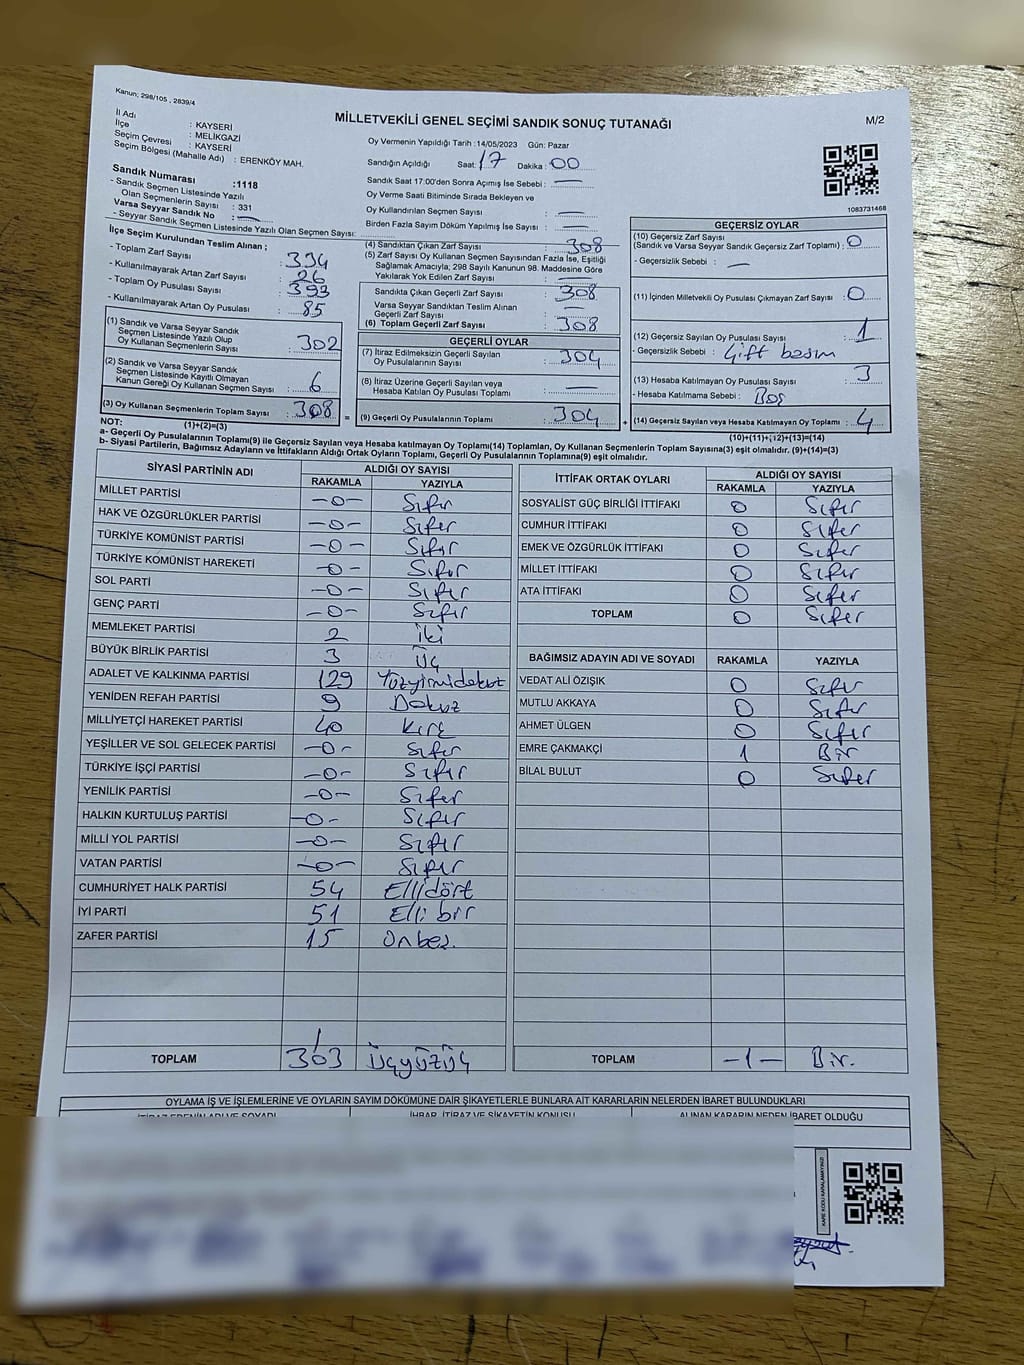 Kanun; 298/105 , 2839/4
MİLLETVEKİLİ GENEL SEÇİMİ SANDIK SONUÇ TUTANAĞI
M/2
İl Adı : KAYSERİ
İlçe : MELİKGAZİ
Seçim Çevresi : KAYSERİ
Seçim Bölgesi (Mahalle Adı) : ERENKÖY MAH.
Sandık Numarası :1118
- Sandık Seçmen Listesinde Yazılı
Olan Seçmenlerin Sayısı : 331
Varsa Seyyar Sandık No : —
- Seyyar Sandık Seçmen Listesinde Yazılı Olan Seçmen Sayısı:
Oy Vermenin Yapıldığı Tarih :14/05/2023 Gün: Pazar
Sandığın Açıldığı Saat: 17 Dakika : 00
Sandık Saat 17:00'den Sonra Açımış İse Sebebi : —
Oy Verme Saati Bitiminde Sırada Bekleyen ve
Oy Kullandırılan Seçmen Sayısı : —
Birden Fazla Sayım Döküm Yapılmış İse Sayısı : —
1083731468
İlçe Seçim Kurulundan Teslim Alınan ;
- Toplam Zarf Sayısı : 334
- Kullanılmayarak Artan Zarf Sayısı : 26
- Toplam Oy Pusulası Sayısı : 393
- Kullanılmayarak Artan Oy Pusulası : 85
(1) Sandık ve Varsa Seyyar Sandık
Seçmen Listesinde Yazılı Olup
Oy Kullanan Seçmenlerin Sayısı : 302
(2) Sandık ve Varsa Seyyar Sandık
Seçmen Listesinde Kayıtlı Olmayan
Kanun Gereği Oy Kullanan Seçmen Sayısı : 6
(3) Oy Kullanan Seçmenlerin Toplam Sayısı : 308
(1)+(2)=(3)
(4) Sandıktan Çıkan Zarf Sayısı : 308
(5) Zarf Sayısı Oy Kullanan Seçmen Sayısından Fazla İse, Eşitliği
Sağlamak Amacıyla; 298 Sayılı Kanunun 98. Maddesine Göre
Yakılarak Yok Edilen Zarf Sayısı : —
Sandıkta Çıkan Geçerli Zarf Sayısı : 308
Varsa Seyyar Sandıktan Teslim Alınan
Geçerli Zarf Sayısı : —
(6) Toplam Geçerli Zarf Sayısı : 308
GEÇERLİ OYLAR
(7) İtiraz Edilmeksizin Geçerli Sayılan
Oy Pusulalarının Sayısı : 304
(8) İtiraz Üzerine Geçerli Sayılan veya
Hesaba Katılan Oy Pusulası Toplamı : —
= (9) Geçerli Oy Pusulalarının Toplamı : 304
GEÇERSİZ OYLAR
(10) Geçersiz Zarf Sayısı
(Sandık ve Varsa Seyyar Sandık Geçersiz Zarf Toplamı) : 0
- Geçersizlik Sebebi : —
(11) İçinden Milletvekili Oy Pusulası Çıkmayan Zarf Sayısı : 0
(12) Geçersiz Sayılan Oy Pusulası Sayısı : 1
- Geçersizlik Sebebi : Çift basım
(13) Hesaba Katılmayan Oy Pusulası Sayısı : 3
- Hesaba Katılmama Sebebi : Boş
+ (14) Geçersiz Sayılan veya Hesaba Katılmayan Oy Toplamı : 4
(10)+(11)+(12)+(13)=(14)
NOT:
a- Geçerli Oy Pusulalarının Toplamı(9) ile Geçersiz Sayılan veya Hesaba katılmayan Oy Toplamı(14) Toplamları, Oy Kullanan Seçmenlerin Toplam Sayısına(3) eşit olmalıdır. (9)+(14)=(3)
b- Siyasi Partilerin, Bağımsız Adayların ve İttifakların Aldığı Ortak Oyların Toplamı, Geçerli Oy Pusulalarının Toplamına(9) eşit olmalıdır.
SİYASİ PARTİNİN ADI ALDIĞI OY SAYISI
RAKAMLA YAZIYLA
MİLLET PARTİSİ —0— Sıfır
HAK VE ÖZGÜRLÜKLER PARTİSİ —0— Sıfır
TÜRKİYE KOMÜNİST PARTİSİ —0— Sıfır
TÜRKİYE KOMÜNİST HAREKETİ —0— Sıfır
SOL PARTİ —0— Sıfır
GENÇ PARTİ —0— Sıfır
MEMLEKET PARTİSİ 2 iki
BÜYÜK BİRLİK PARTİSİ 3 üç
ADALET VE KALKINMA PARTİSİ 129 Yüzyirmidokuz
YENİDEN REFAH PARTİSİ 9 Dokuz
MİLLİYETÇİ HAREKET PARTİSİ 40 Kırk
YEŞİLLER VE SOL GELECEK PARTİSİ —0— Sıfır
TÜRKİYE İŞÇİ PARTİSİ —0— Sıfır
YENİLİK PARTİSİ —0— Sıfır
HALKIN KURTULUŞ PARTİSİ —0— Sıfır
MİLLİ YOL PARTİSİ —0— Sıfır
VATAN PARTİSİ —0— Sıfır
CUMHURİYET HALK PARTİSİ 54 Ellidört
İYİ PARTİ 51 Elli bir
ZAFER PARTİSİ 15 Onbeş.
TOPLAM 303 Üçyüzüç
İTTİFAK ORTAK OYLARI ALDIĞI OY SAYISI
RAKAMLA YAZIYLA
SOSYALİST GÜÇ BİRLİĞİ İTTİFAKI 0 Sıfır
CUMHUR İTTİFAKI 0 Sıfır
EMEK VE ÖZGÜRLÜK İTTİFAKI 0 Sıfır
MİLLET İTTİFAKI 0 Sıfır
ATA İTTİFAKI 0 Sıfır
TOPLAM 0 Sıfır
BAĞIMSIZ ADAYIN ADI VE SOYADI RAKAMLA YAZIYLA
VEDAT ALİ ÖZIŞIK 0 Sıfır
MUTLU AKKAYA 0 Sıfır
AHMET ÜLGEN 0 Sıfır
EMRE ÇAKMAKÇİ 1 Bir
BİLAL BULUT 0 Sıfır
TOPLAM —1— Bir.
OYLAMA İŞ VE İŞLEMLERİNE VE OYLARIN SAYIM DÖKÜMÜNE DAİR ŞİKAYETLERLE BUNLARA AİT KARARLARIN NELERDEN İBARET BULUNDUKLARI
İTİRAZ EDENİN ADI VE SOYADI İHBAR, İTİRAZ VE ŞİKAYETİN KONUSU ALINAN KARARIN NEDEN İBARET OLDUĞU
KARE KODU KARALAMAYINIZ!